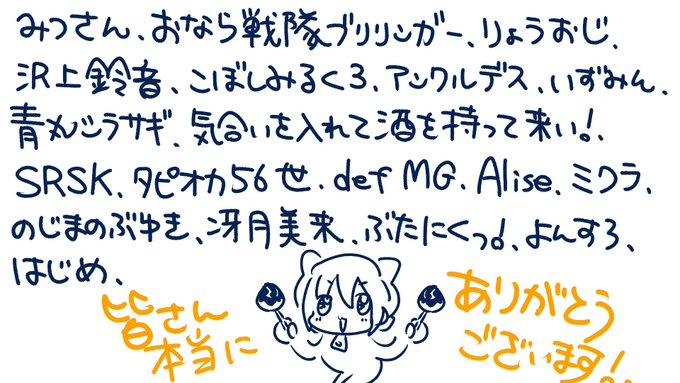 みつさん、おなら戦隊ブリリンガー、りょうおじ、
沢上鈴音、こぼしみるく3、アンクルデス、いずみん、
青丸シラサギ、気合いを入れて酒を持って来い!、
SRSK、タピオカ56世、def MG、Alise、ミクラ、
のじまのぶゆき、冴月美来、ぶたにくっ!、よんすろ、
はじめ、
皆さん
本当に
ありがとう
ございます!